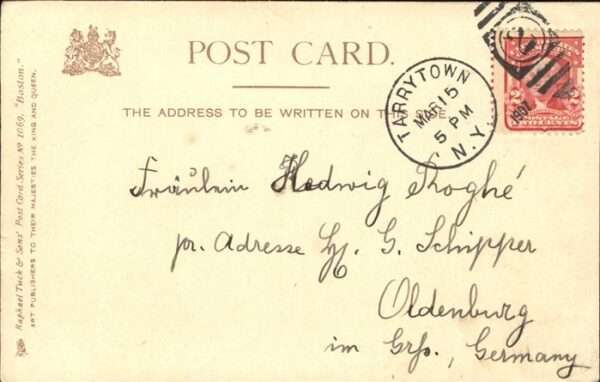 POST CARD.
THE ADDRESS TO BE WRITTEN ON THIS
TARRYTOWN
MAR 15
5 PM
N.Y.
1907
2
POSTAGE
Fräulein Hedwig Roghé
pr. Adresse H. G. Schipper
Oldenburg
im Grfs., Germany
Raphael Tuck & Sons' Post Card Series No 1069, "Boston."
ART PUBLISHERS TO THEIR MAJESTIES THE KING AND QUEEN.